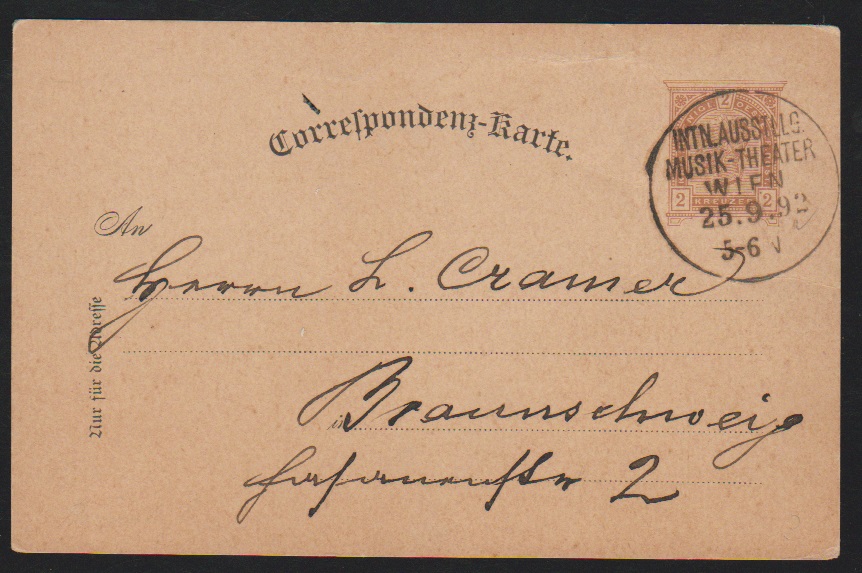 Correspondenz-Karte.
INTN.AUSSTLLG.
MUSIK-THEATER
WIEN
25.9.92
5-6 N
2
2 KREUZER 2
An
Herrn L. Cramer
in Braunschweig
Fasanenstr 2
Nur für die Adresse